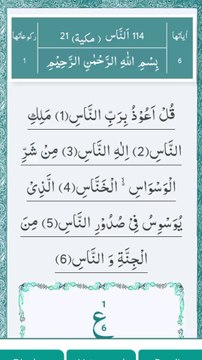 اٰیاتها 114 اَلنَّاس (مکیة) 21 رکوعاتها
6 بِسْمِ اللّٰهِ الرَّحْمٰنِ الرَّحِیْمِ 1
قُلْ اَعُوْذُ بِرَبِّ النَّاسِ(1) مَلِكِ
النَّاسِ(2) اِلٰهِ النَّاسِ(3) مِنْ شَرِّ
الْوَسْوَاسِ ﳔ الْخَنَّاسِ(4) الَّذِیْ
یُوَسْوِسُ فِیْ صُدُوْرِ النَّاسِ(5) مِنَ
الْجِنَّةِ وَ النَّاسِ(6)
1
ع
6